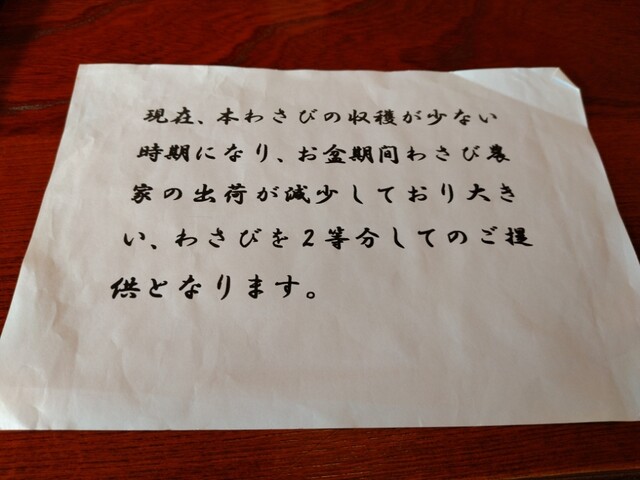 現在、本わさびの収穫が少ない
時期になり、お盆期間わさび農
家の出荷が減少しており大き
い、わさびを2等分してのご提
供となります。